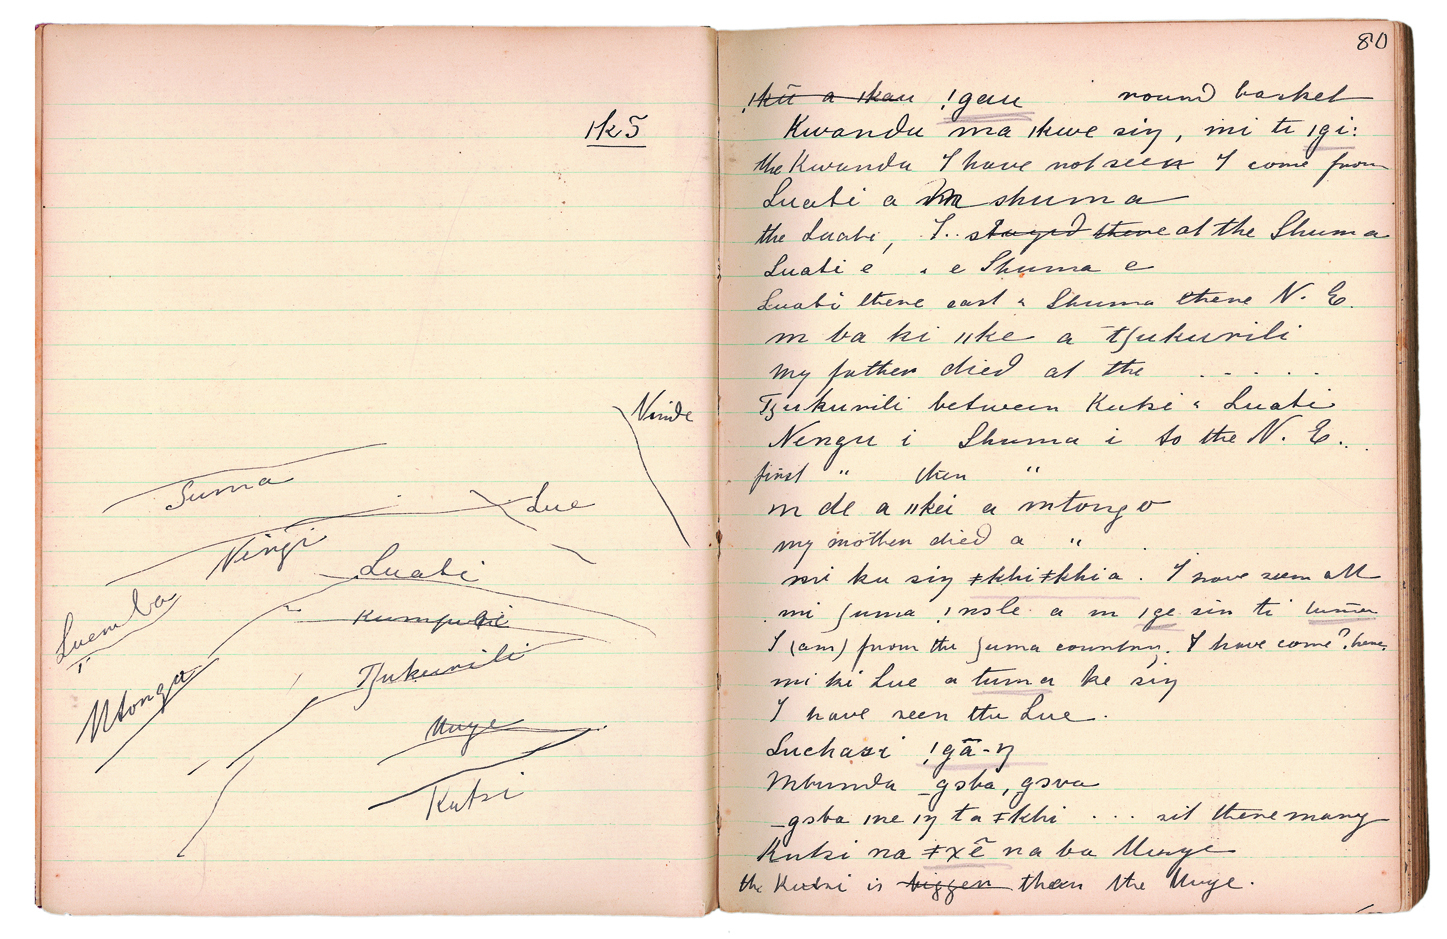 ık5
Ninde
Suma
Lue
Ningi
Luati
Luemba
Kumpuli
Tʃukurili
Ntonga
Muye
Kutsi
80
ıkū a ıkau !gau round basket
Kwandu ma ıkwe siŋ, mi ti ıgi:
the Kwandu I have not seen I come from
Luati a shuma
the Luati, I.. stayed there at the Shuma
Luati e . e Shuma e
Luati there east " Shuma there N. E.
m ba ki ııke a tʃukurili
my father died at the - - . . .
Tʃukurili between Kutsi " Luati
Nengu i Shuma i to the N. E.
first " then "
m de a ııkei a mtongo
my mother died a "
mi ku siŋ ǂkhiǂkhia. I have seen all
mi ʃuma !nsle a m ıge sin ti
I (am) from the ʃuma country. I have come? here.
mi ki Lue a tuma ke siŋ
I have seen the Lue.
Luchasi !gā-ŋ
Mbunda _gsba, gsva
_gsba ıne ıŋ ta ǂkhi ... sit there many
Kutsi na ǂxẽ na ba Muye
the Kutsi is bigger than the Muye.